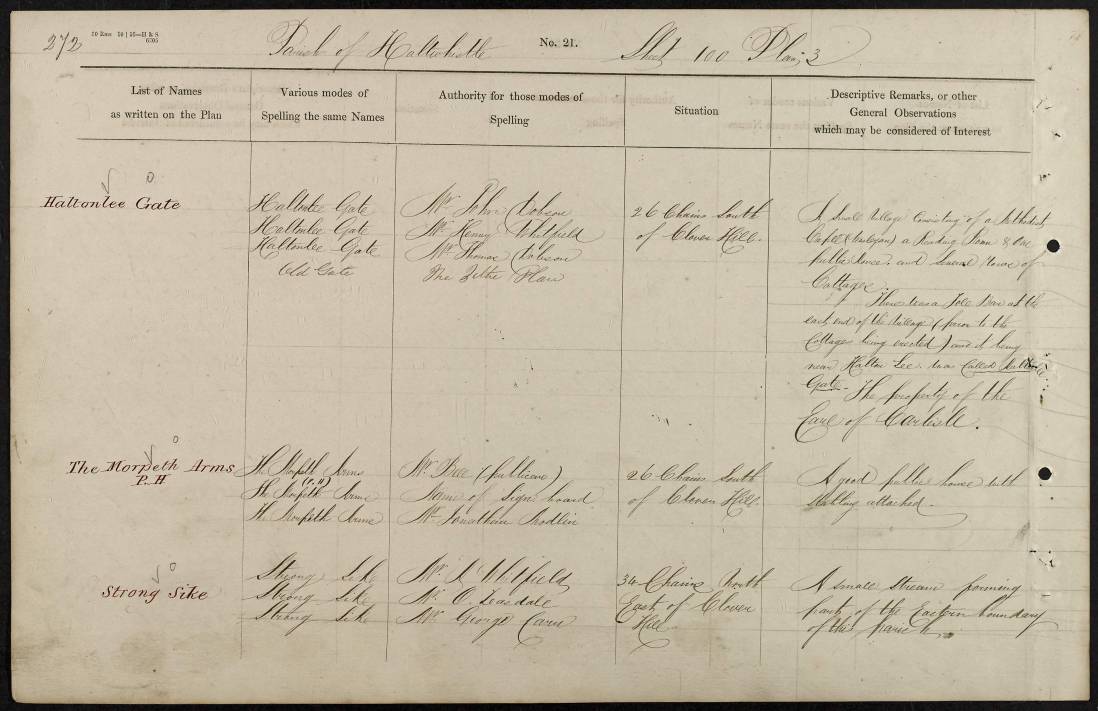 272
Parish of Haltwhistle No. 21. Sheet 100 Plan 3
List of Names
as written on the Plan
Various modes of
Spelling the same Names
Authority for those modes of
Spelling
Situation
Descriptive Remarks, or other
General Observations
which may be considered of Interest
Haltonlee Gate
Haltonlee Gate
Haltonlee Gate
Haltonlee Gate
Old Gate
Mr. John Dobson
Mr. Henry Whitfield
Mr. Thomas Dobson
The Tithe Plan
26 Chains South
of Clover Hill.
A Small Village Consisting of a Methodist
Chapel (Wesleyan) a Reading Room & One
public house. and Several rows of
Cottages.
There was a Tole Bar at the
east end of the Village (prior to the
Cottages being erected) and it being
near Halton Lee. was Called
Gate. The property of the
Earl of Carlisle.
The Morpeth Arms
P.H
The Morpeth Arms
(P.H)
The Morpeth Arms
The Morpeth Arms
Mr. (publican)
Name of Sign board
Mr. Jonathan
26 Chains South
of Clover Hill.
A good public house with
Stabling attached.
Strong Sike
Strong Sike
Strong Sike
Strong Sike
Mr. Whitfield
Mr. Teasdale
Mr. George
34 Chains North
East of Clover
Hill
A small Stream forming
part of the Eastern boundary
of this parish.